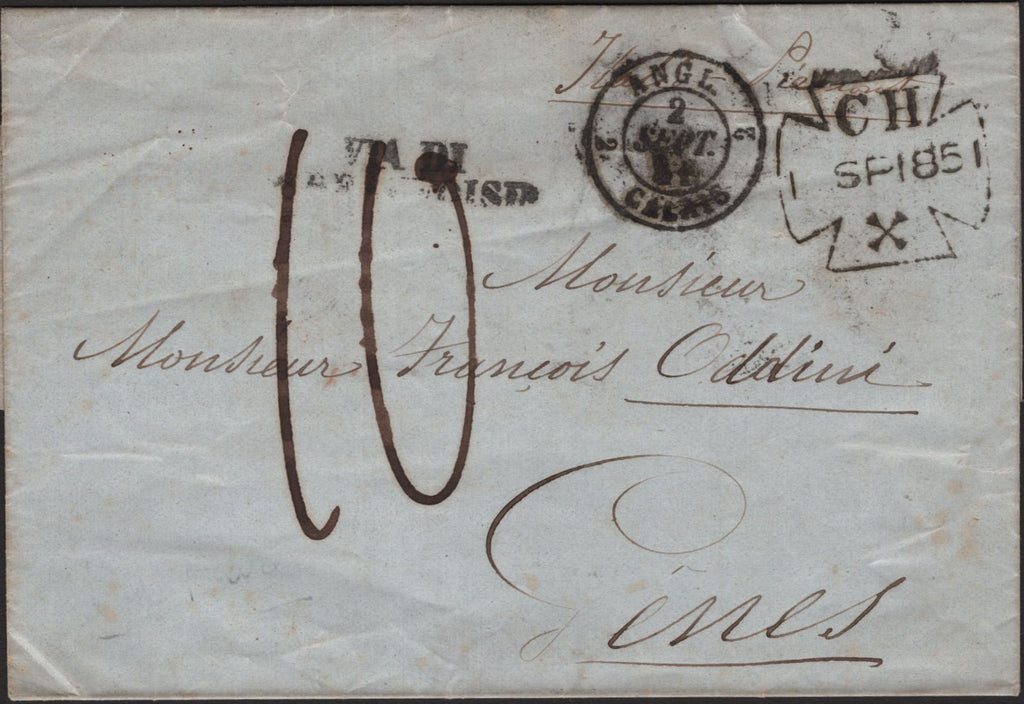 ANGL.
2
2
SEPT.
51
2
CALAIS
CH
SP 1851
X
VIA DI
Monsieur
Monsieur François Oddini
10
Gênes